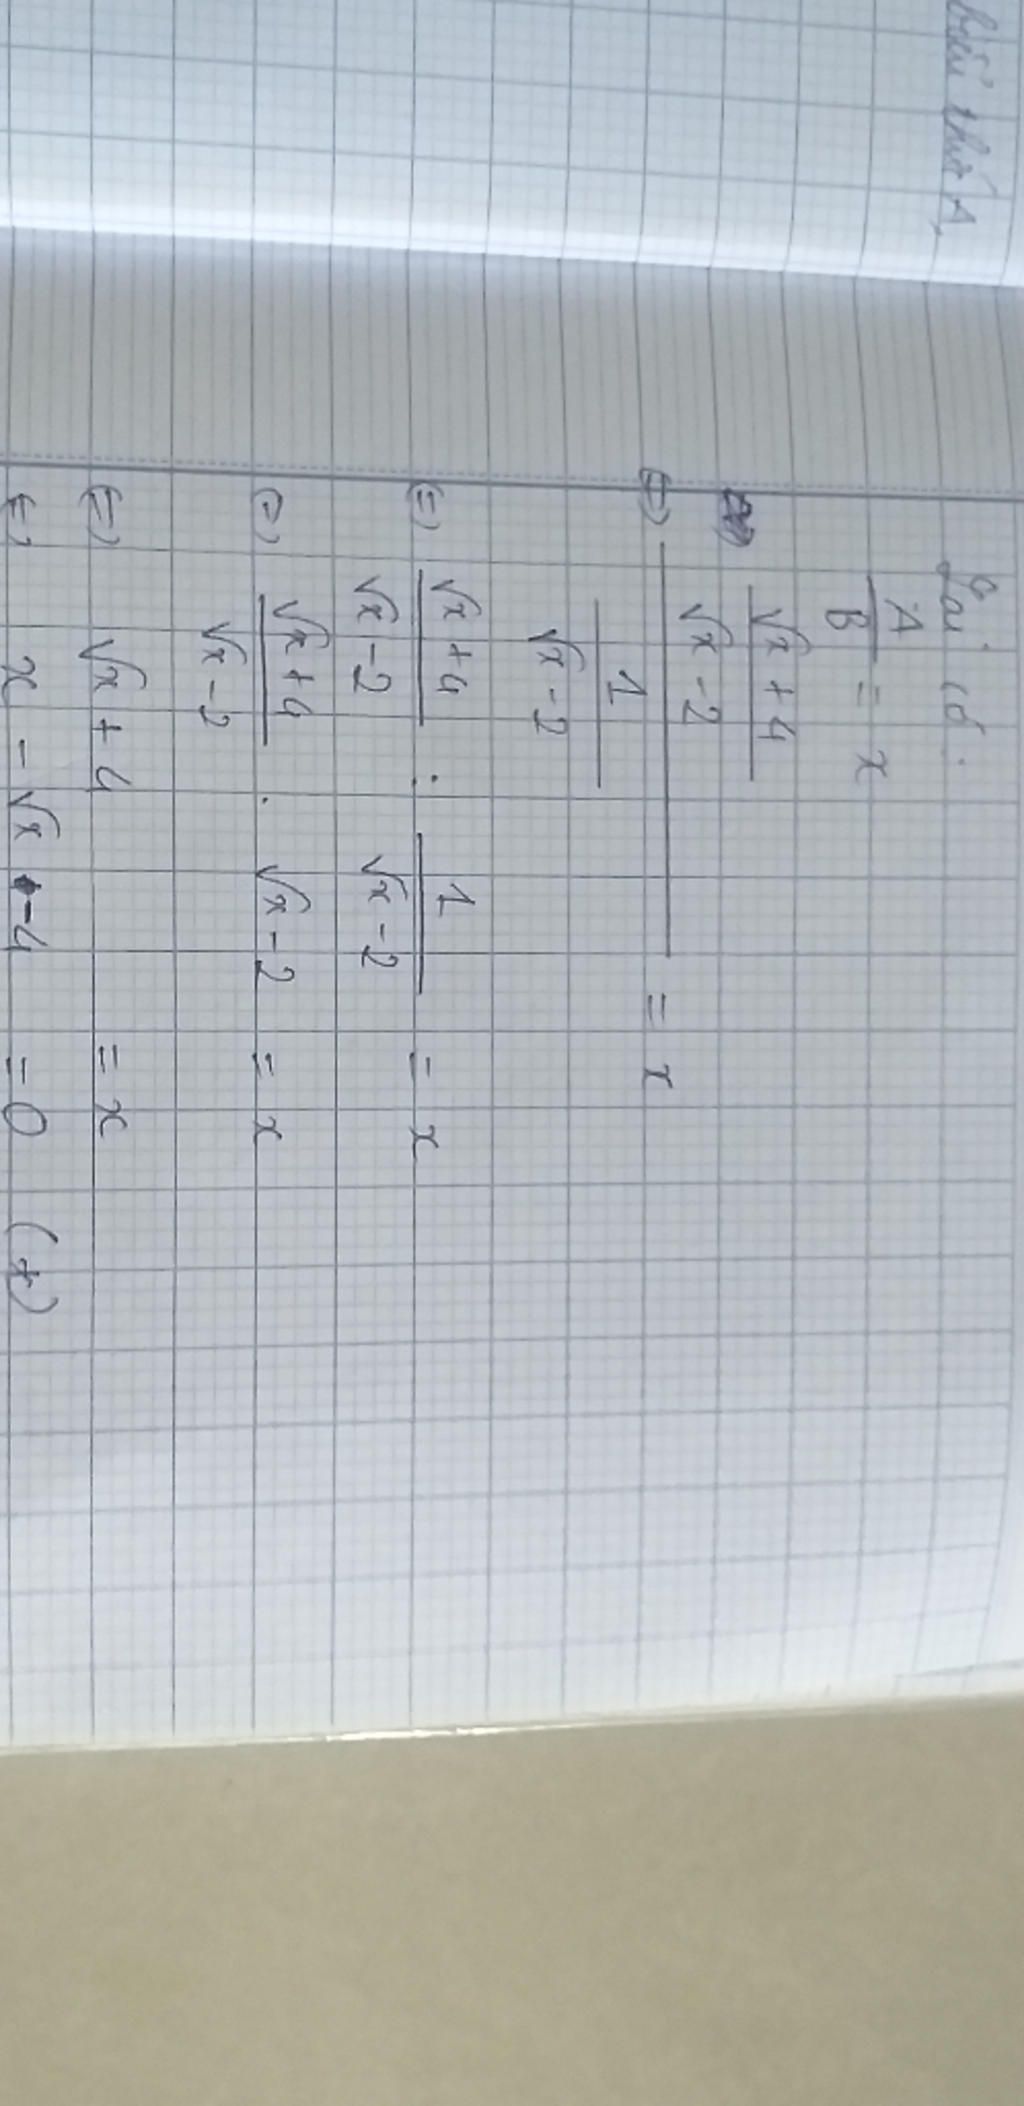 biểu thức A,
Lại có:
A/B = x
⇔ ((√x + 4)/(√x - 2))/(1/(√x - 2)) = x
⇔ (√x + 4)/(√x - 2) : 1/(√x - 2) = x
⇔ (√x + 4)/(√x - 2) . √x - 2 = x
⇔ √x + 4 = x
⇔ x - √x - 4 = 0 (*)